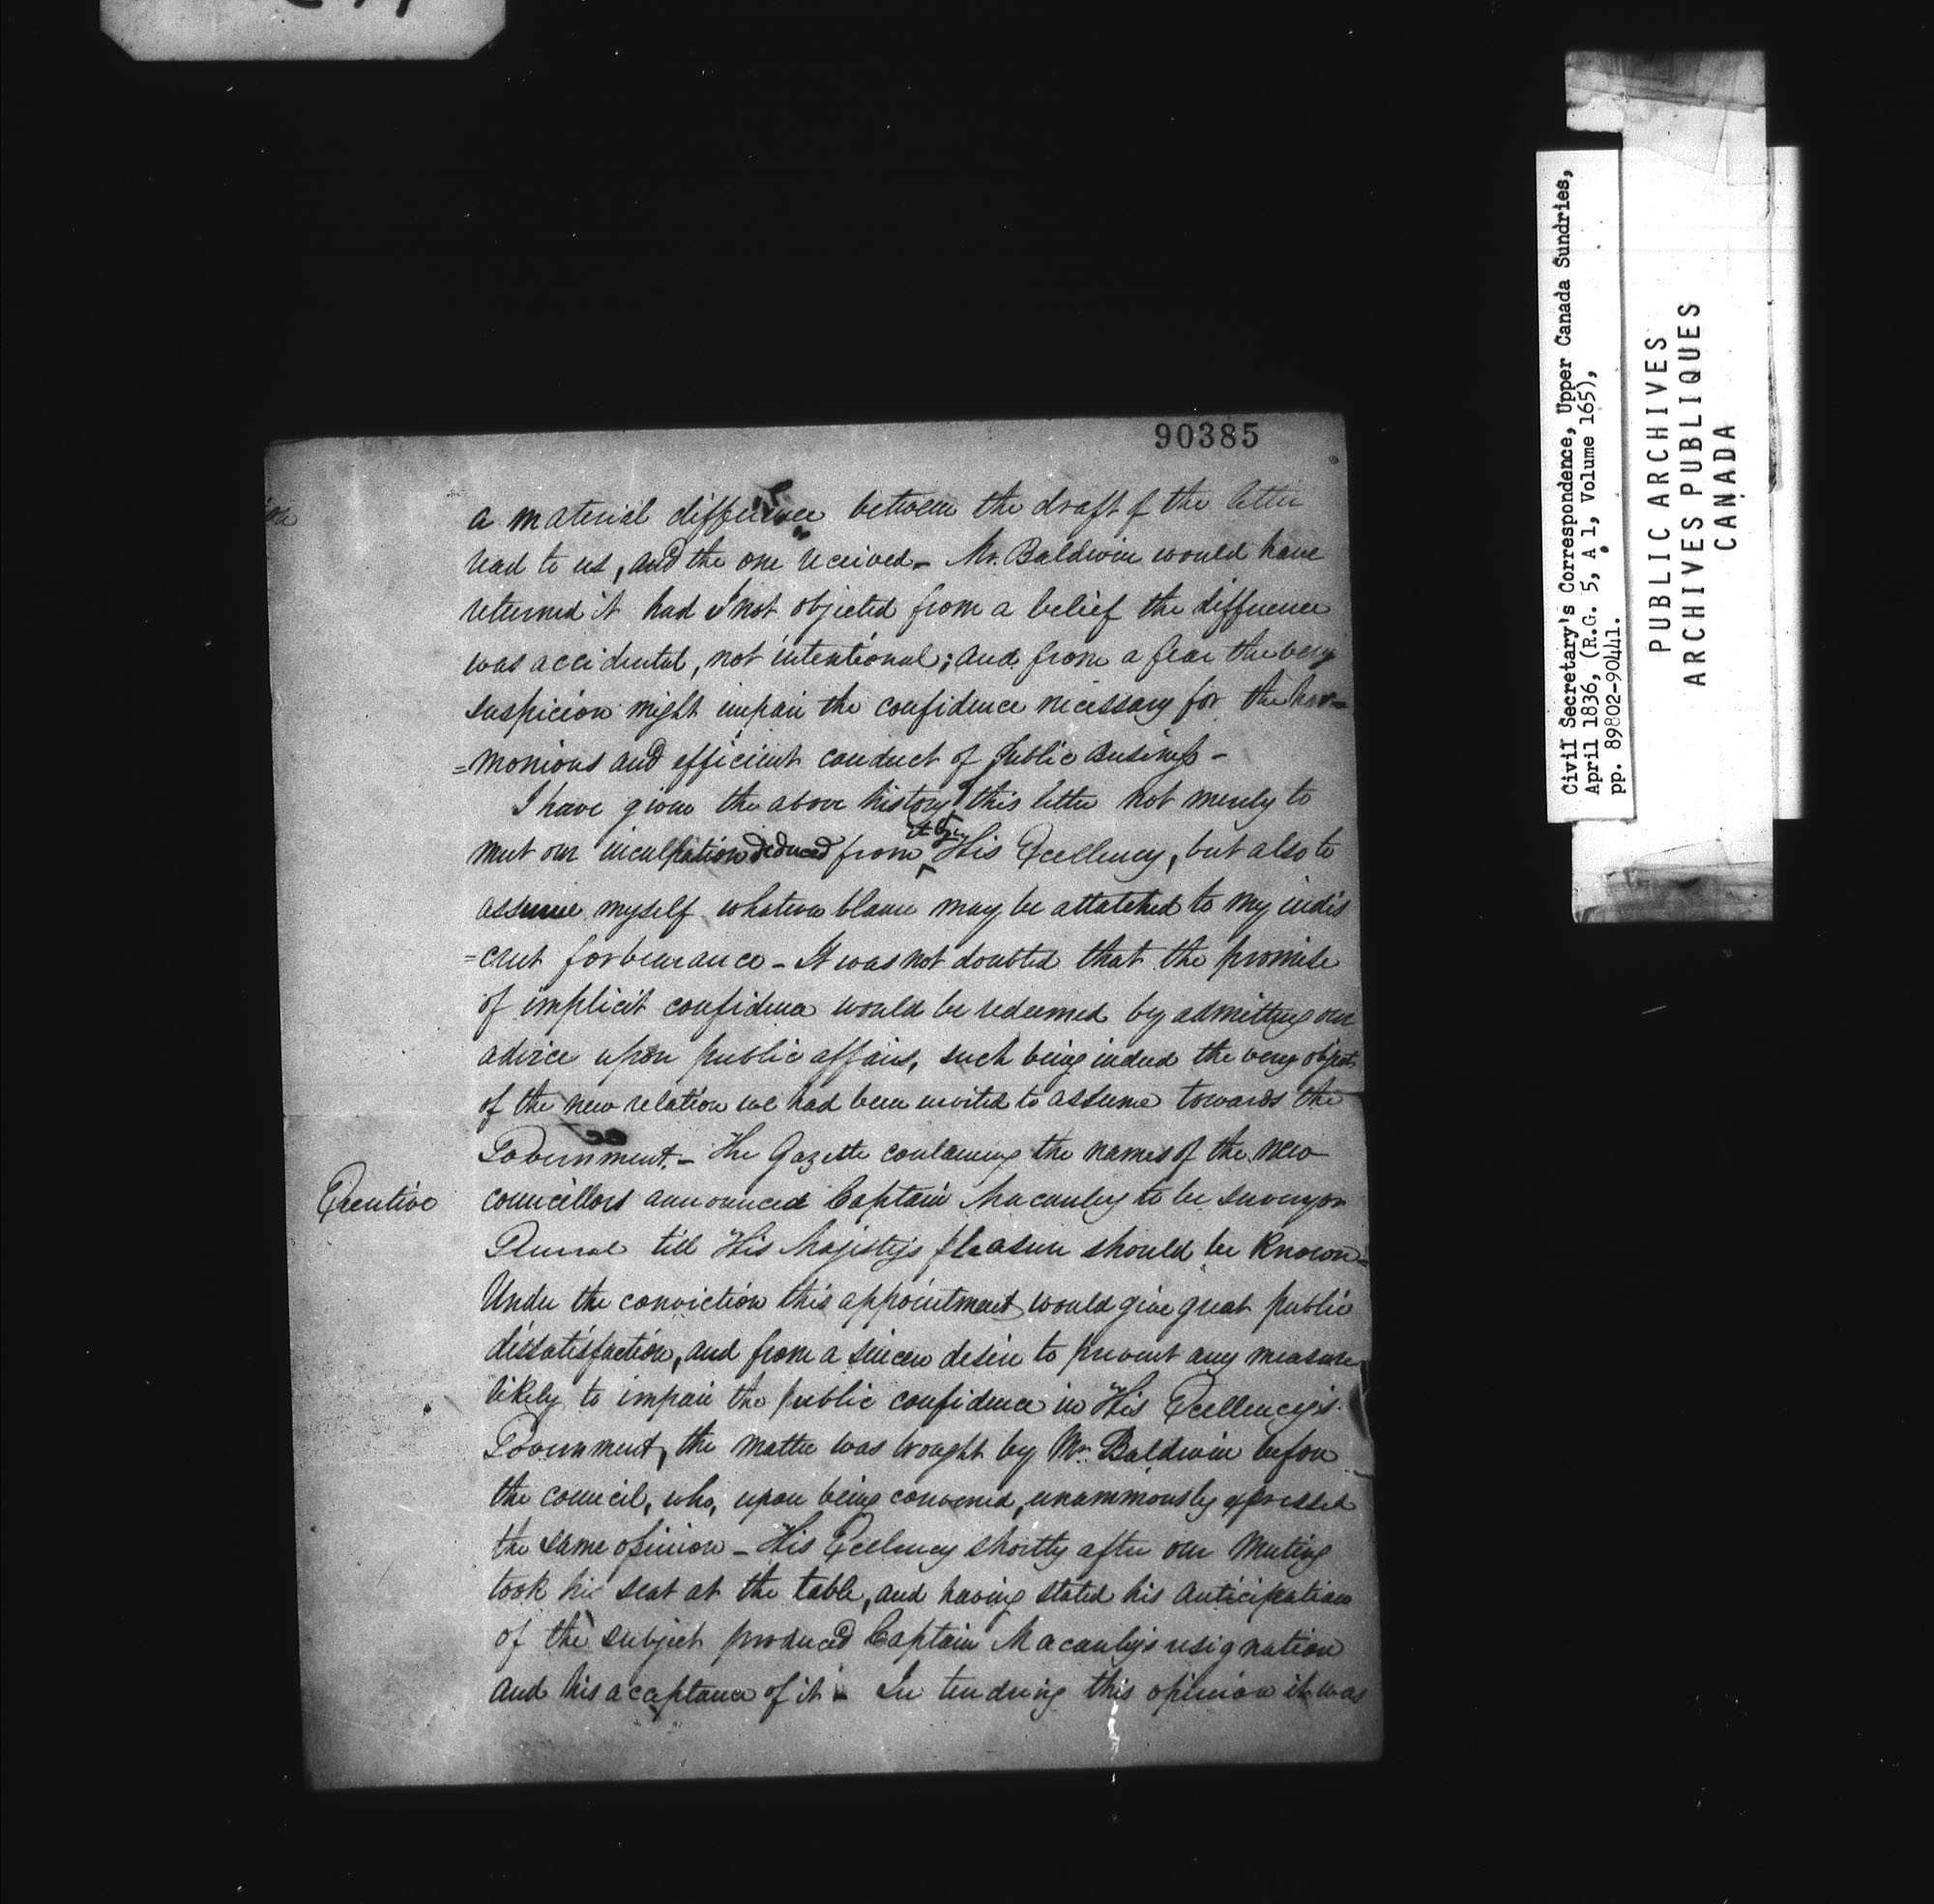 90385
a material difference between the draft of the letter
read to us, and the one received - Mr. Baldwin would have
returned it had I not objected from a belief the difference
was accidental, not intentional; and from a fear the very
suspicion might impair the confidence necessary for the har=
=monious and efficient conduct of public Business -
I have given the above history of this letter not merely to
meet our inculpation deduced from it by His Excellency, but also to
assume myself whatever blame may be attatched to my indis
=creet forbearance - It was not doubted that the promise
of implicit confidence would be redeemed by admitting our
advice upon public affairs, such being indeed the very object
of the new relation we had been invited to assume towards the
Government. - The Gazette containing the names of the new
Executive
councillors announced Captain Macauley to be Surveyor
General till His Majesty's pleasure should be known -
Under the conviction this appointment would give great public
dissatisfaction, and from a sincere desire to prevent any measure
likely to impair the public confidence in His Excellency's
Government, the matter was brought by Mr. Baldwin before
the council, who, upon being convened, unanimously expressed
the same opinion - His Excellency shortly after our meeting
took his seat at the table, and having stated his anticipation
of the subject produced Captain Macauley's resignation
and his acceptance of it - In tendering this opinion it was
Civil Secretary's Correspondence, Upper Canada Sundries,
April 1836, (R.G. 5, A 1, Volume 165),
pp. 89802-90441.
PUBLIC ARCHIVES
ARCHIVES PUBLIQUES
CANADA